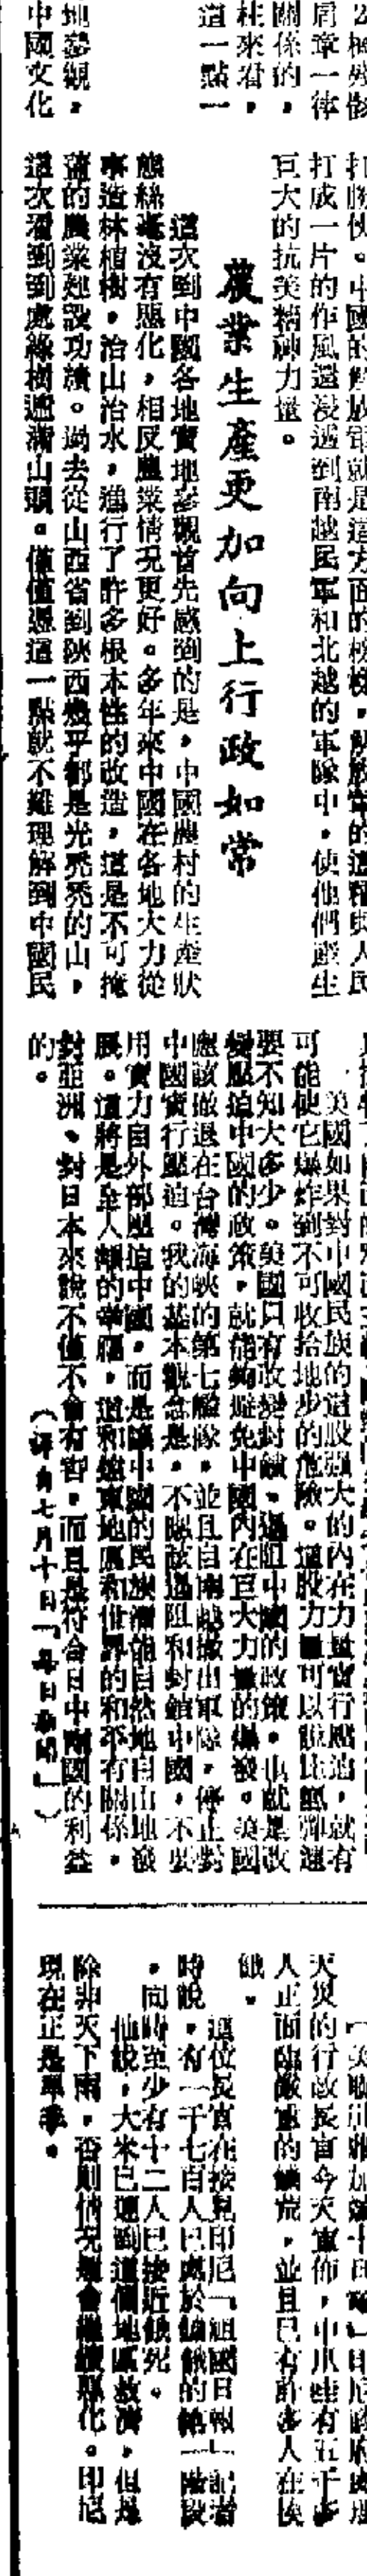 公梅殘骸
肩章一律
關係的，
柱來看，
這一點一
地參觀，
中國文化
打成一片的作風還浸透到南越民軍和北越的軍隊中，使他們產生
巨大的抗美精神力量。
農業生產更加向上行政如常
這次到中國各地實地參觀首先感到的是，中國農村的生產狀
態絲毫沒有惡化，相反農業情況更好。多年來中國在各地大力從
事造林植樹，治山治水，進行了許多根本性的改造，這是不可掩
蓋的農業建設功績。過去從山西省到陝西幾乎都是光禿禿的山，
這次看到到處綠樹遮滿山頭。僅僅憑這一點就不難理解到中國民
美國如果對中國民族的這股强大的內在力量實行壓迫，就有
可能使它爆炸到不可收拾地步的危險。這股力量可以說比氫彈還
要不知大多少。美國只有改變封鎖、遏阻中國的政策，也就是改
變壓迫中國的政策，就能夠避免中國內在巨大力量的爆發。美國
應該撤退在台灣海峽的第七艦隊，並且自南越撤出軍隊，停止對
中國實行壓迫。我的基本觀念是，不應該遏阻和封鎖中國，不要
用實力自外部壓迫中國，而是讓中國的民族潛能自然地自由地發
展。這將是全人類的幸福，這和遠東地區和世界的和平有關係，
對亞洲、對日本來說不僅不會有害，而且是符合日中兩國的利益
的。
（譯自七月十日「每日新聞」）
天災的行政長官今天宣佈，中爪哇有五千多
人正面臨嚴重的饑荒，並且已有許多人在挨
餓。
這位長官在接見印尼「祖國日報」記者
時說，有一千七百人已處於飢餓的第一階段
，同時至少有十二人已接近餓死。
他說，大米已運到這個地區救濟，但是
除非天下雨，否則情況還會繼續惡化。印尼
現在正是旱季。